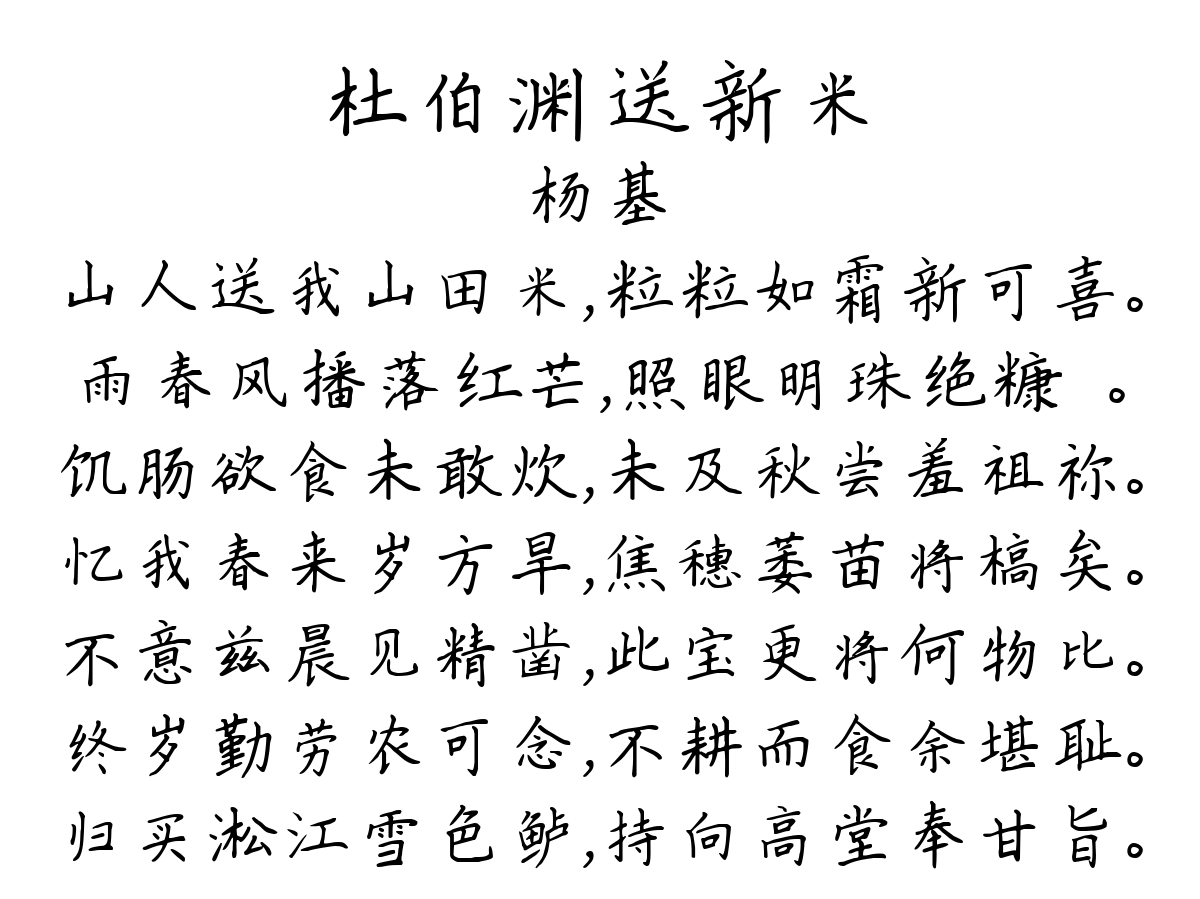 杜伯渊送新米
杨基
山人送我山田米,粒粒如霜新可喜。
雨春风播落红芒,照眼明珠绝糠 。
饥肠欲食未敢炊,未及秋尝羞祖祢。
忆我春来岁方旱,焦穗萎苗将槁矣。
不意兹晨见精凿,此宝更将何物比。
终岁勤劳农可念,不耕而食余堪耻。
归买淞江雪色鲈,持向高堂奉甘旨。